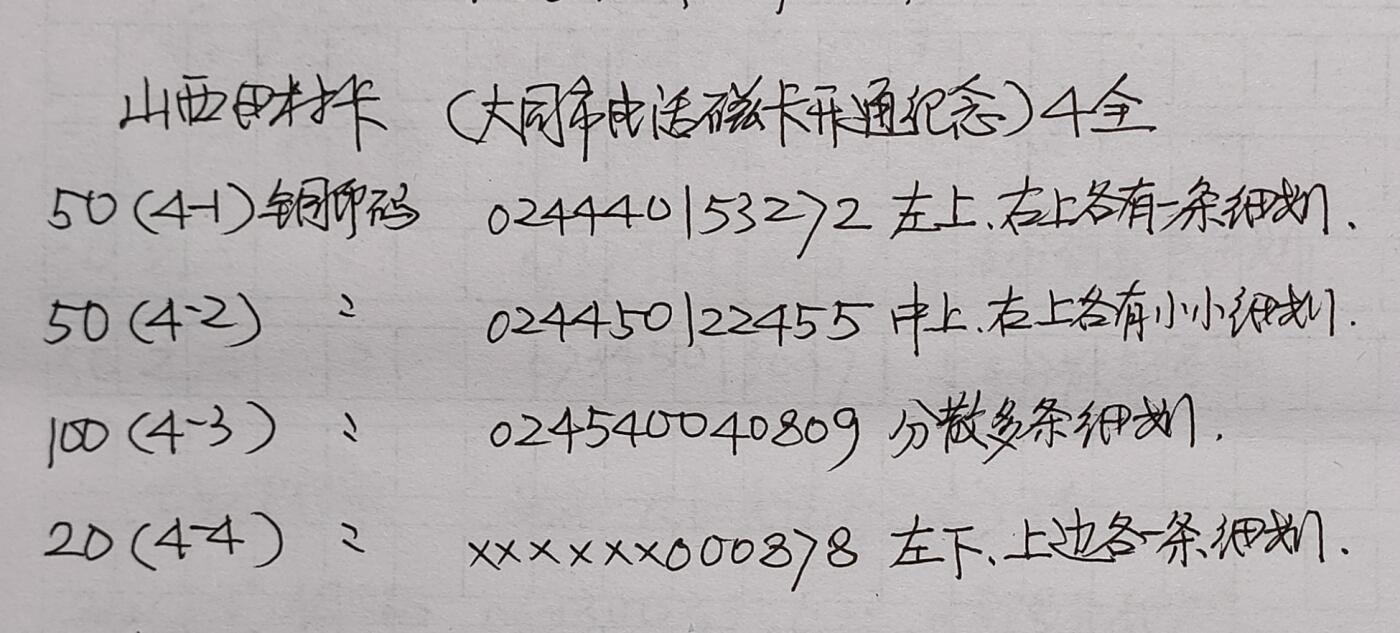 山西田村卡 (大同市电话磁卡开通纪念) 4全
50 (4-1) 钢印码 024440153272 左上、右上各有一条细划.
50 (4-2) 〃 024450122455 中上、右上各有小小细划.
100 (4-3) 〃 024540040809 分散多条细划.
20 (4-4) 〃 xxxxxx000878 左下、上边各一条细划.